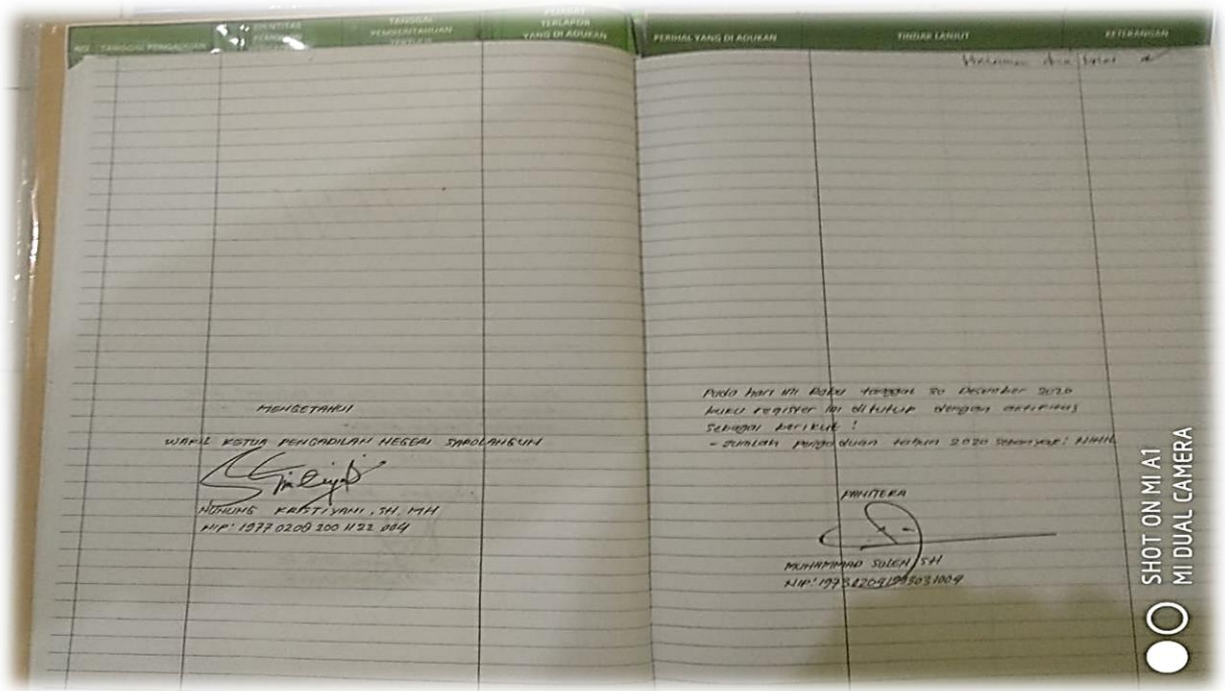 NO
TANGGAL PENGADUAN
IDENTITAS
TANGGAL
PEMBERITAHUAN
PEJABAT
TERLAPOR
YANG DI ADUKAN
PERIHAL YANG DI ADUKAN
TINDAK LANJUT
KETERANGAN
MENGETAHUI
WAKIL KETUA PENGADILAN NEGERI SAROLANGUN
NUNUNG KRISTIYANI, SH, MH
NIP: 
Pada hari ini Rabu tanggal 30 Desember 2020
buku register ini ditutup dengan aktifitas
sebagai berikut :
- Jumlah pengaduan tahun 2020 sebanyak : NIHIL
PANITERA
MUHAMMAD SOLEH, SH
NIP: 
SHOT ON MI A1
MI DUAL CAMERA